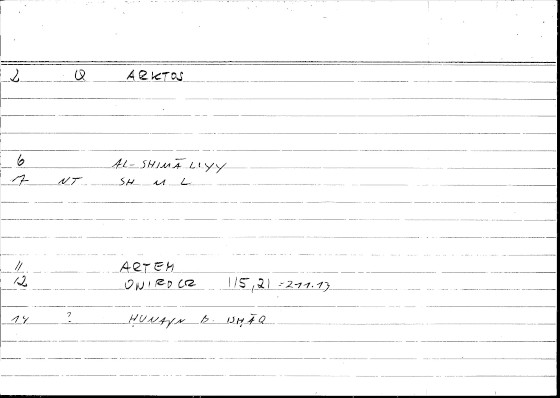 2 Q ARKTOS
6 AL-SHIMĀLIYY
7 NT SH M L
11 ARTEM
12 ONIROCR 115,21 = 211.13
14 ? ḤUNAYN B. ISḤĀQ